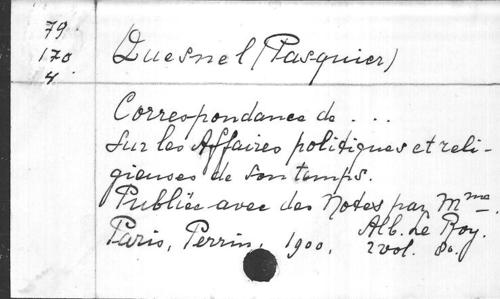 79
170
4.
Quesnel (Pasquier)
Correspondance de ...
sur les Affaires politiques et reli-
gieuses de son temps.
Publiée avec des Notes par Mme.
Alb. Le Roy.
Paris, Perrin, 1900. 2 vol. 8o.